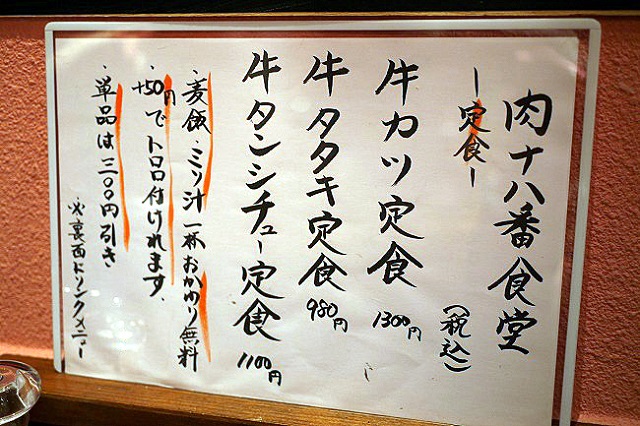 肉十八番食堂
ー定食ー
(税込)
牛カツ定食 1300円
牛タタキ定食 980円
牛タンシチュー定食 1100円
・麦飯・ミソ汁一杯おかわり無料
・+50円でトロロ付けれます。
・単品は三〇〇円引き
※裏面ドリンクメニュー